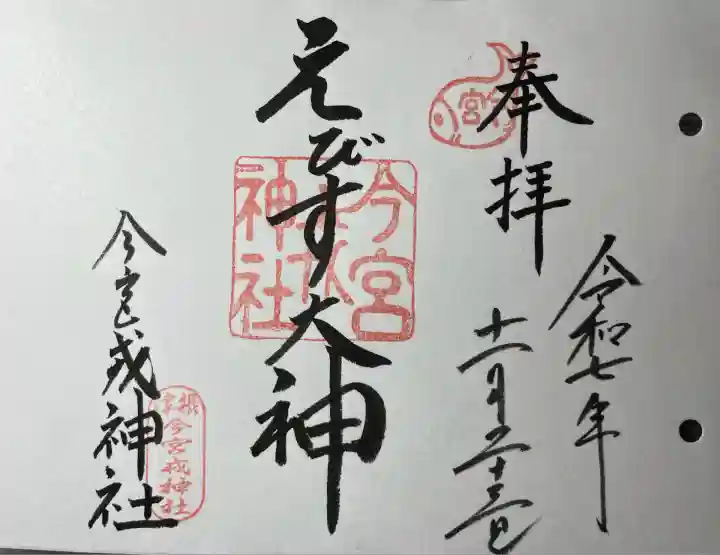 奉拝
令和七年
十一月二十三日
えびす大神
今宮戎神社
今宮
神社
今宮戎神社